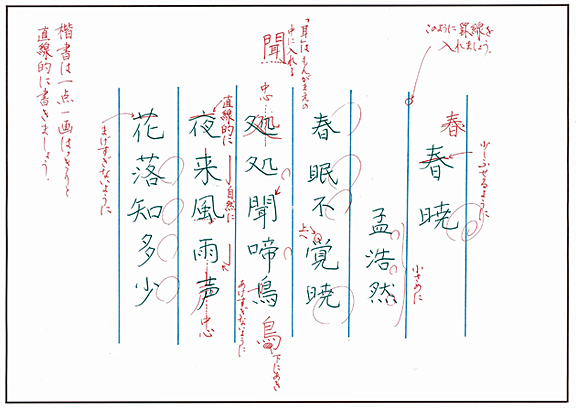 このように罫線を
入れましょう。
春
少しふせるように
春暁
小さめに
孟浩然
「耳」はもんがまえの
中に入れる
聞
上へ
春眠不覚暁
中心
処処聞啼鳥
鳥
下にあき
あけすぎないように
直線的に
自然に
夜来風雨声
中心
花落知多少
まげすぎないように
楷書は一点一画はっきりと
直線的に書きましょう。